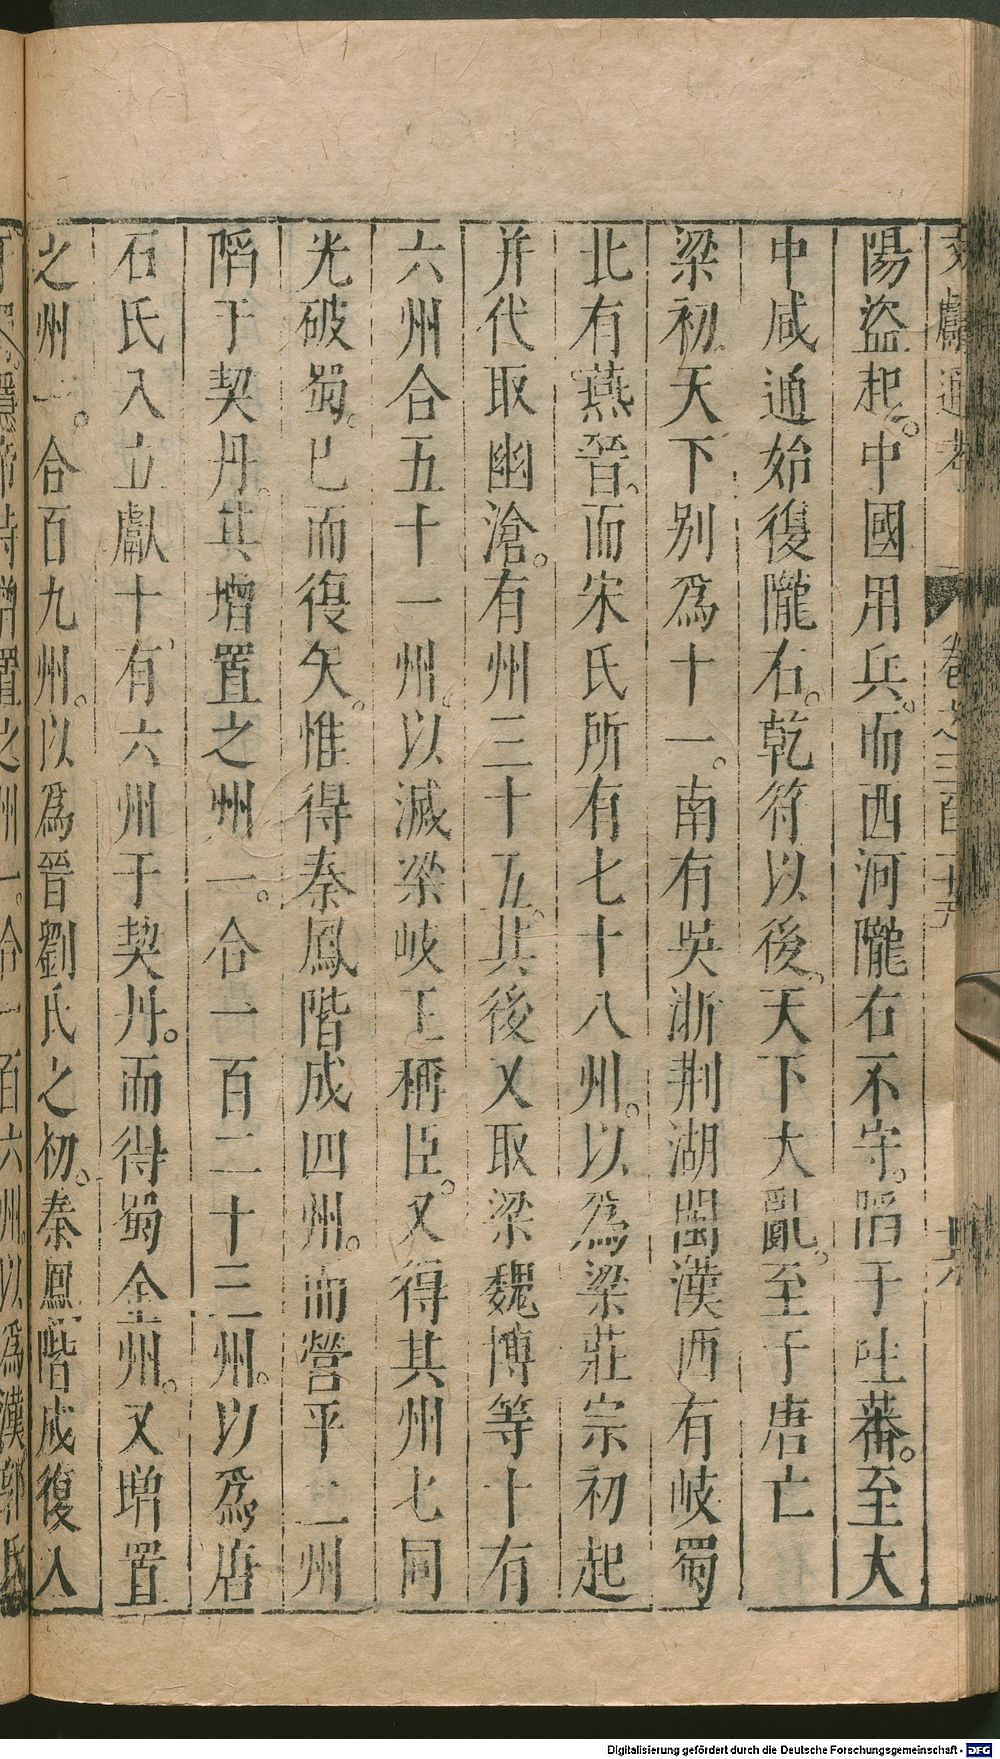 文獻通考 卷之三百十五 其八
陽盜起。中國用兵。而西河隴右不守。陷于吐蕃。至大
中咸通始復隴右。乾符以後。天下大亂。至于唐亡
梁初。天下別爲十一。南有吳浙荆湖閩漢西有岐蜀
北有燕晉。而宋氏所有七十八州。以爲梁莊宗初起
并代取幽滄。有州三十五。其後又取梁魏博等十有
六州合五十一州。以滅梁岐王稱臣。又得其州七同
光破蜀。已而復失。惟得秦鳳階成四州。而營平二州
陷于契丹。其增置之州一。合一百二十三州。以爲唐
石氏入立獻十有六州于契丹。而得蜀金州。又增置
之州一。合百九州。以爲晉劉氏之初。秦鳳階成復入
隱帝時增置之州一。合一百六州。以爲漢郭氏
Digitalisierung gefördert durch die Deutsche Forschungsgemeinschaft - DFG